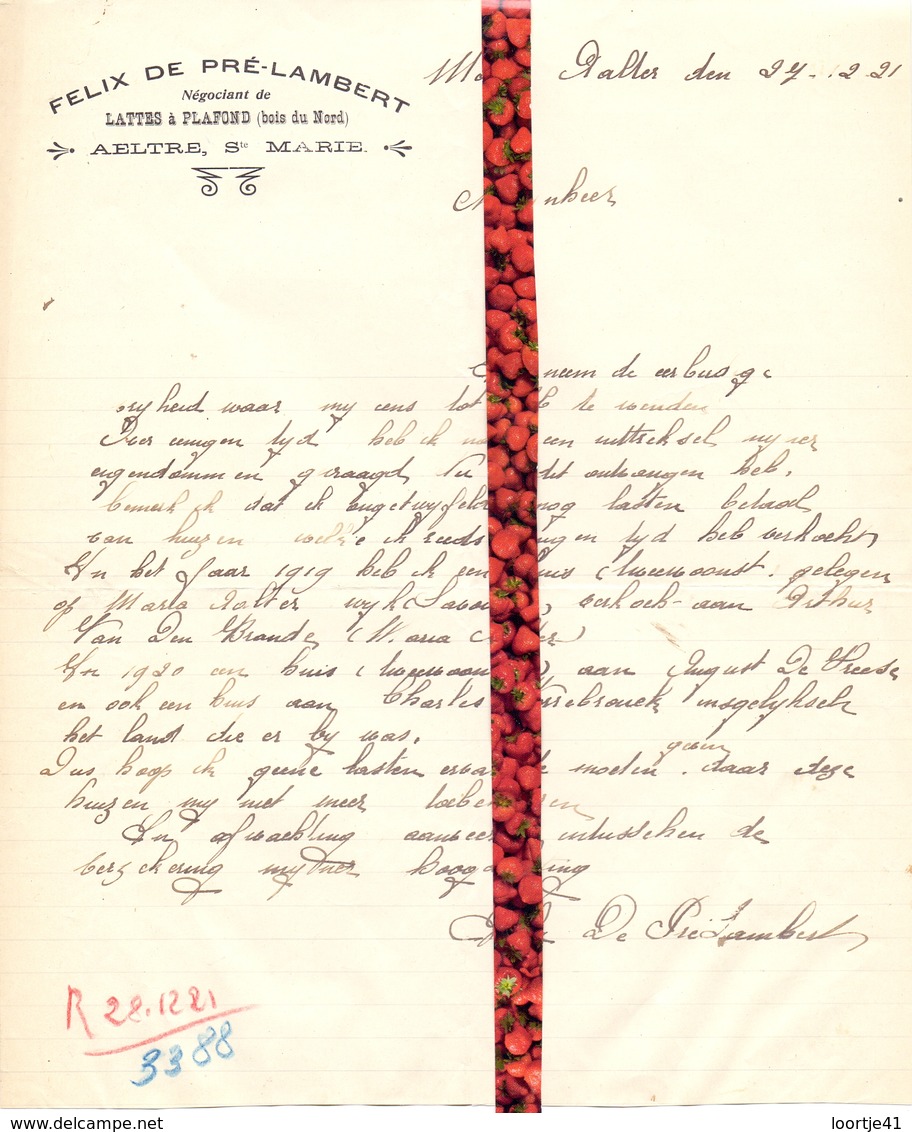 FELIX DE PRÉ-LAMBERT
Négociant de
LATTES à PLAFOND (bois du Nord)
AELTRE, Ste MARIE.
Aalter den 27-12 21
nheer
neem de eerbiedige
vryheid waar my eens tot te wenden
Over eenigen tyd heb ik een uittreksel myner
eigendommen gevraagd Nu dit ontvangen heb,
bemerk ik dat ik nog lasten betaal
van huizen welke ik reeds tyd heb verkocht
In het Jaar 1919 heb ik een huis (tweewoonst. gelegen
op Maria Aalter wyk , verkocht aan Arthur
Van Den Brande (Maria
In 1920 een huis aan August De Vreese
en ook een huis aan Charles insgelyksch
het land die er by was.
geven
Dus hoop ik geene lasten moeten. daar deze
huizen my niet meer
In afwachting intusschen de
verzekering myner
De Pré Lambert
R 28.12 21
3388
delcampe.net
loortje41